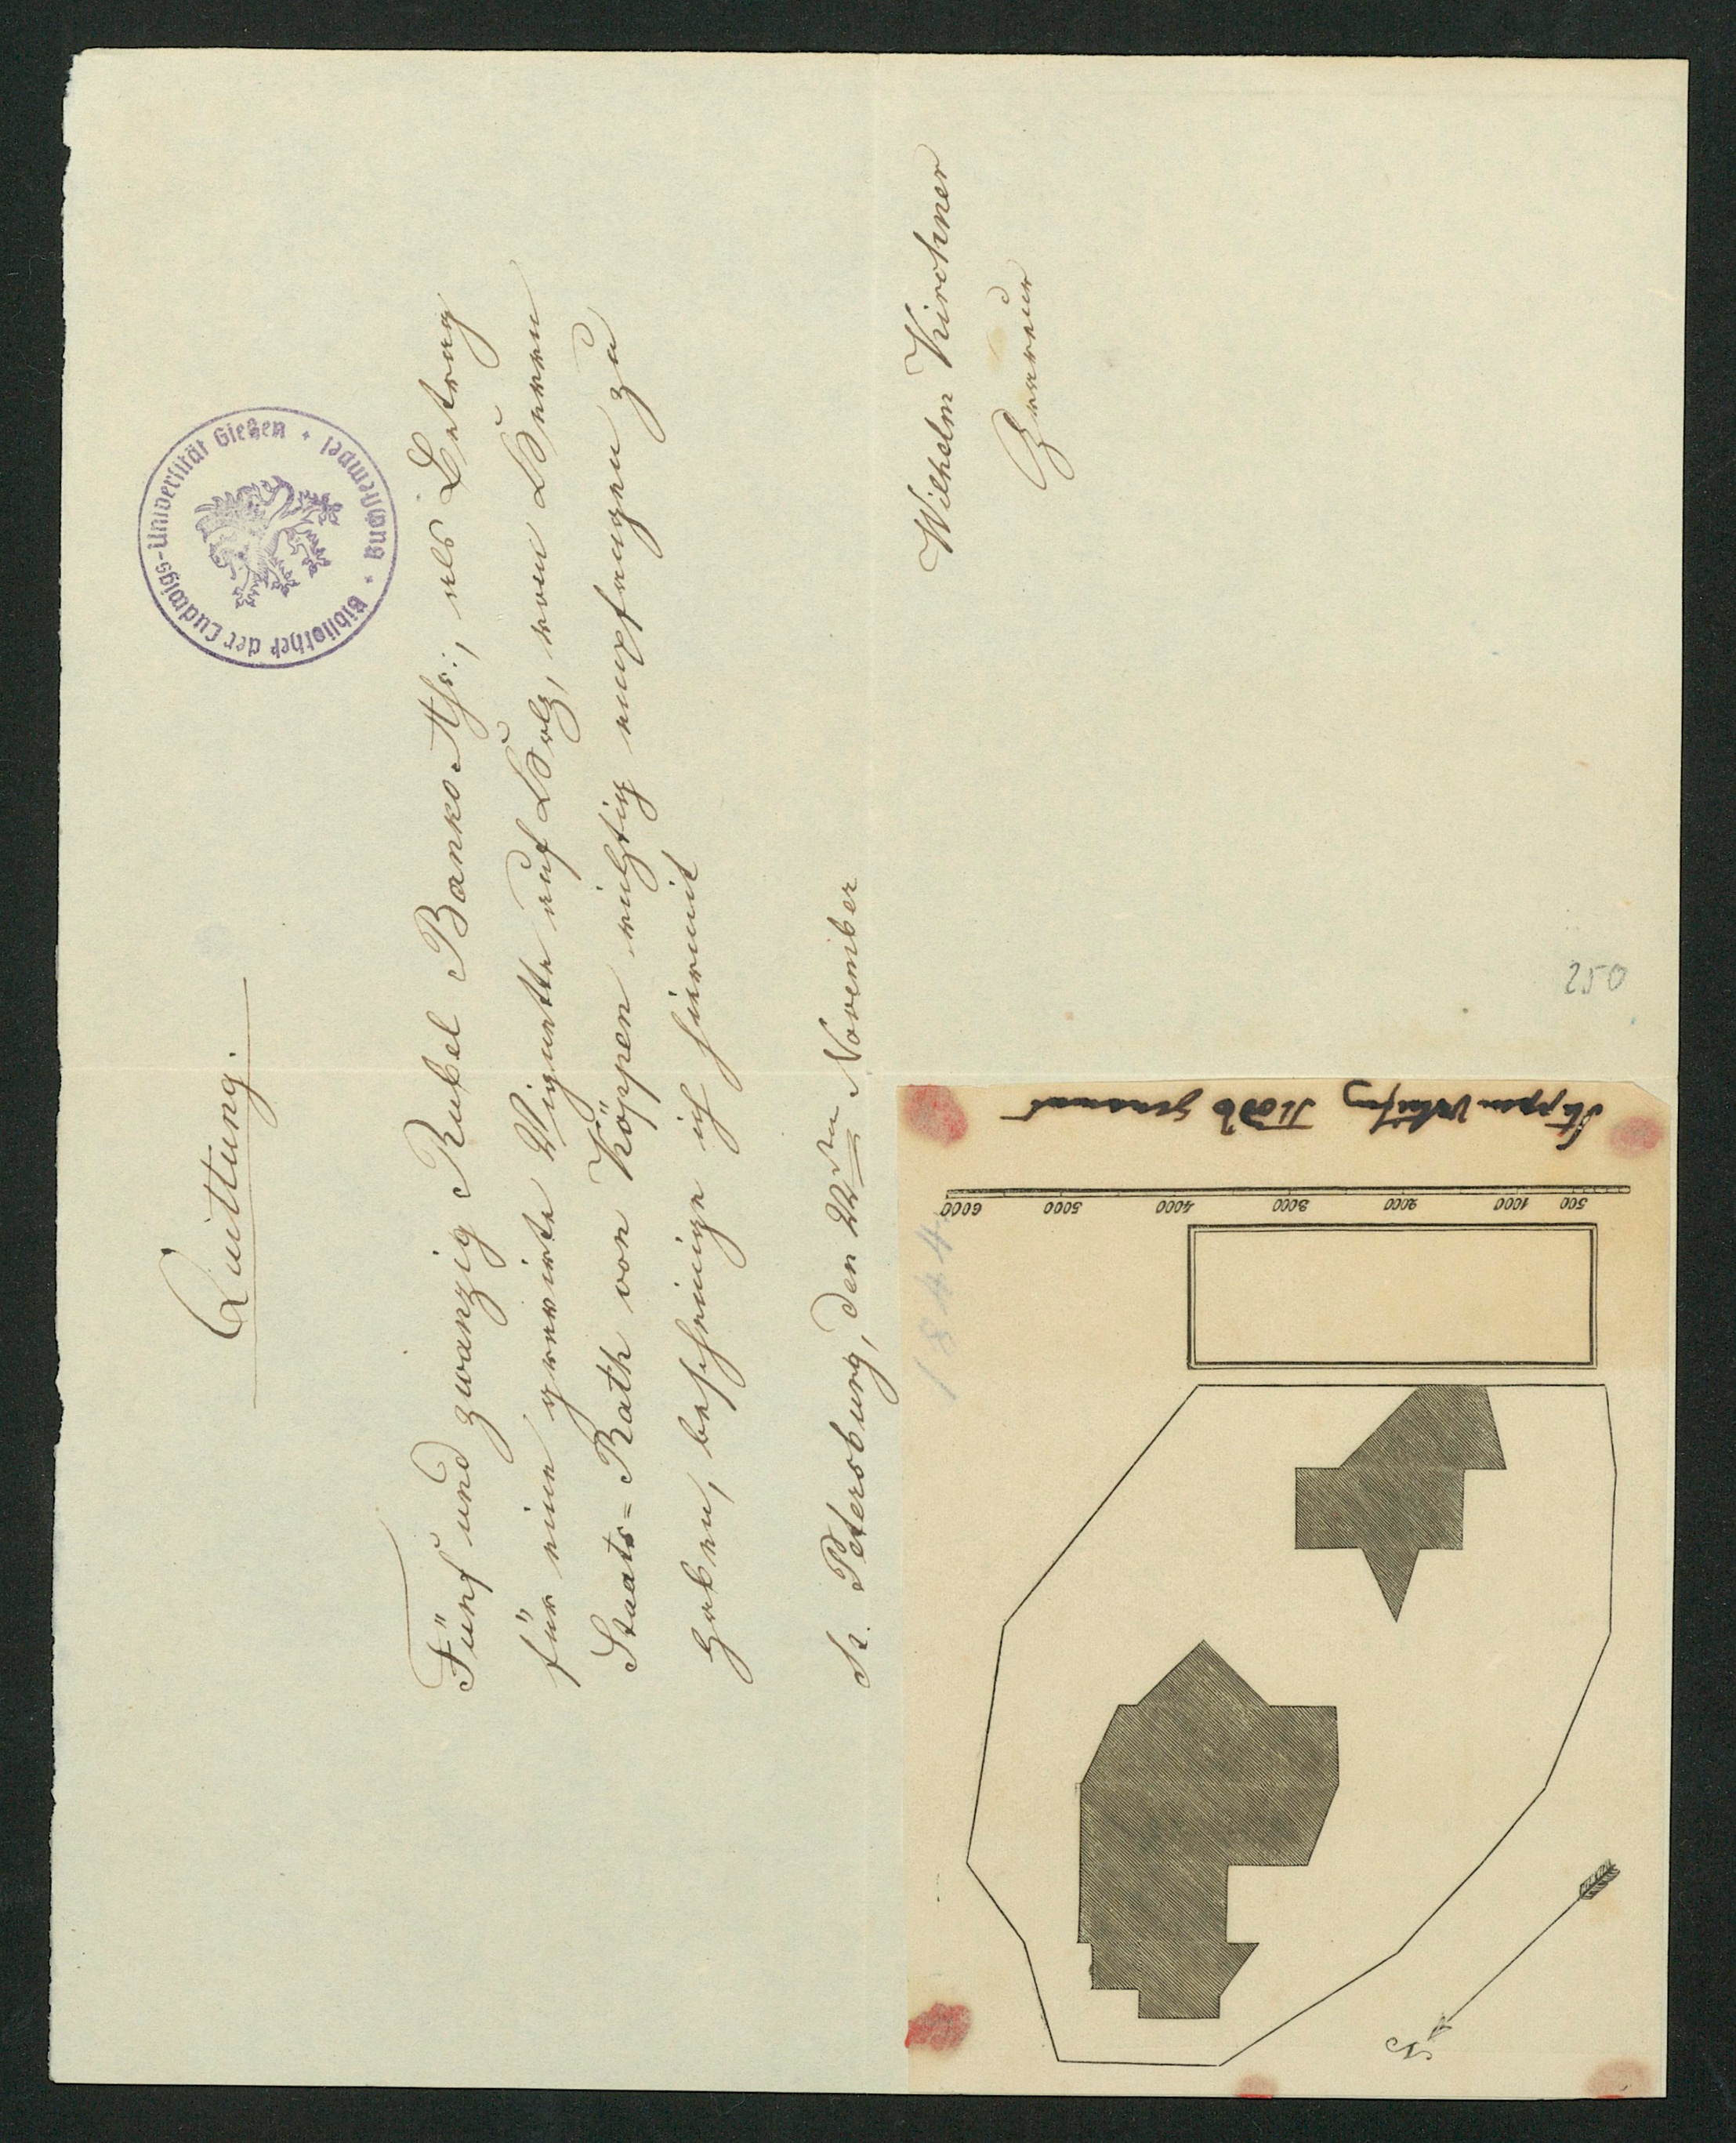 Quittung.
Fünf und zwanzig Rubel Banko Ass:, als Betrag
für eine gravirte Vignette auf Holz, von Herrn
Staats=Rath von Köppen richtig empfangen zu
haben, bescheinige ich hiermit
St. Petersburg, den November
1844.
Wilhelm Kirchner
Graveur
Bibliothek der Ludwigs-Universität Gießen
Buchnerei
250
genannt
500 1000 2000 3000 4000 5000 6000
N